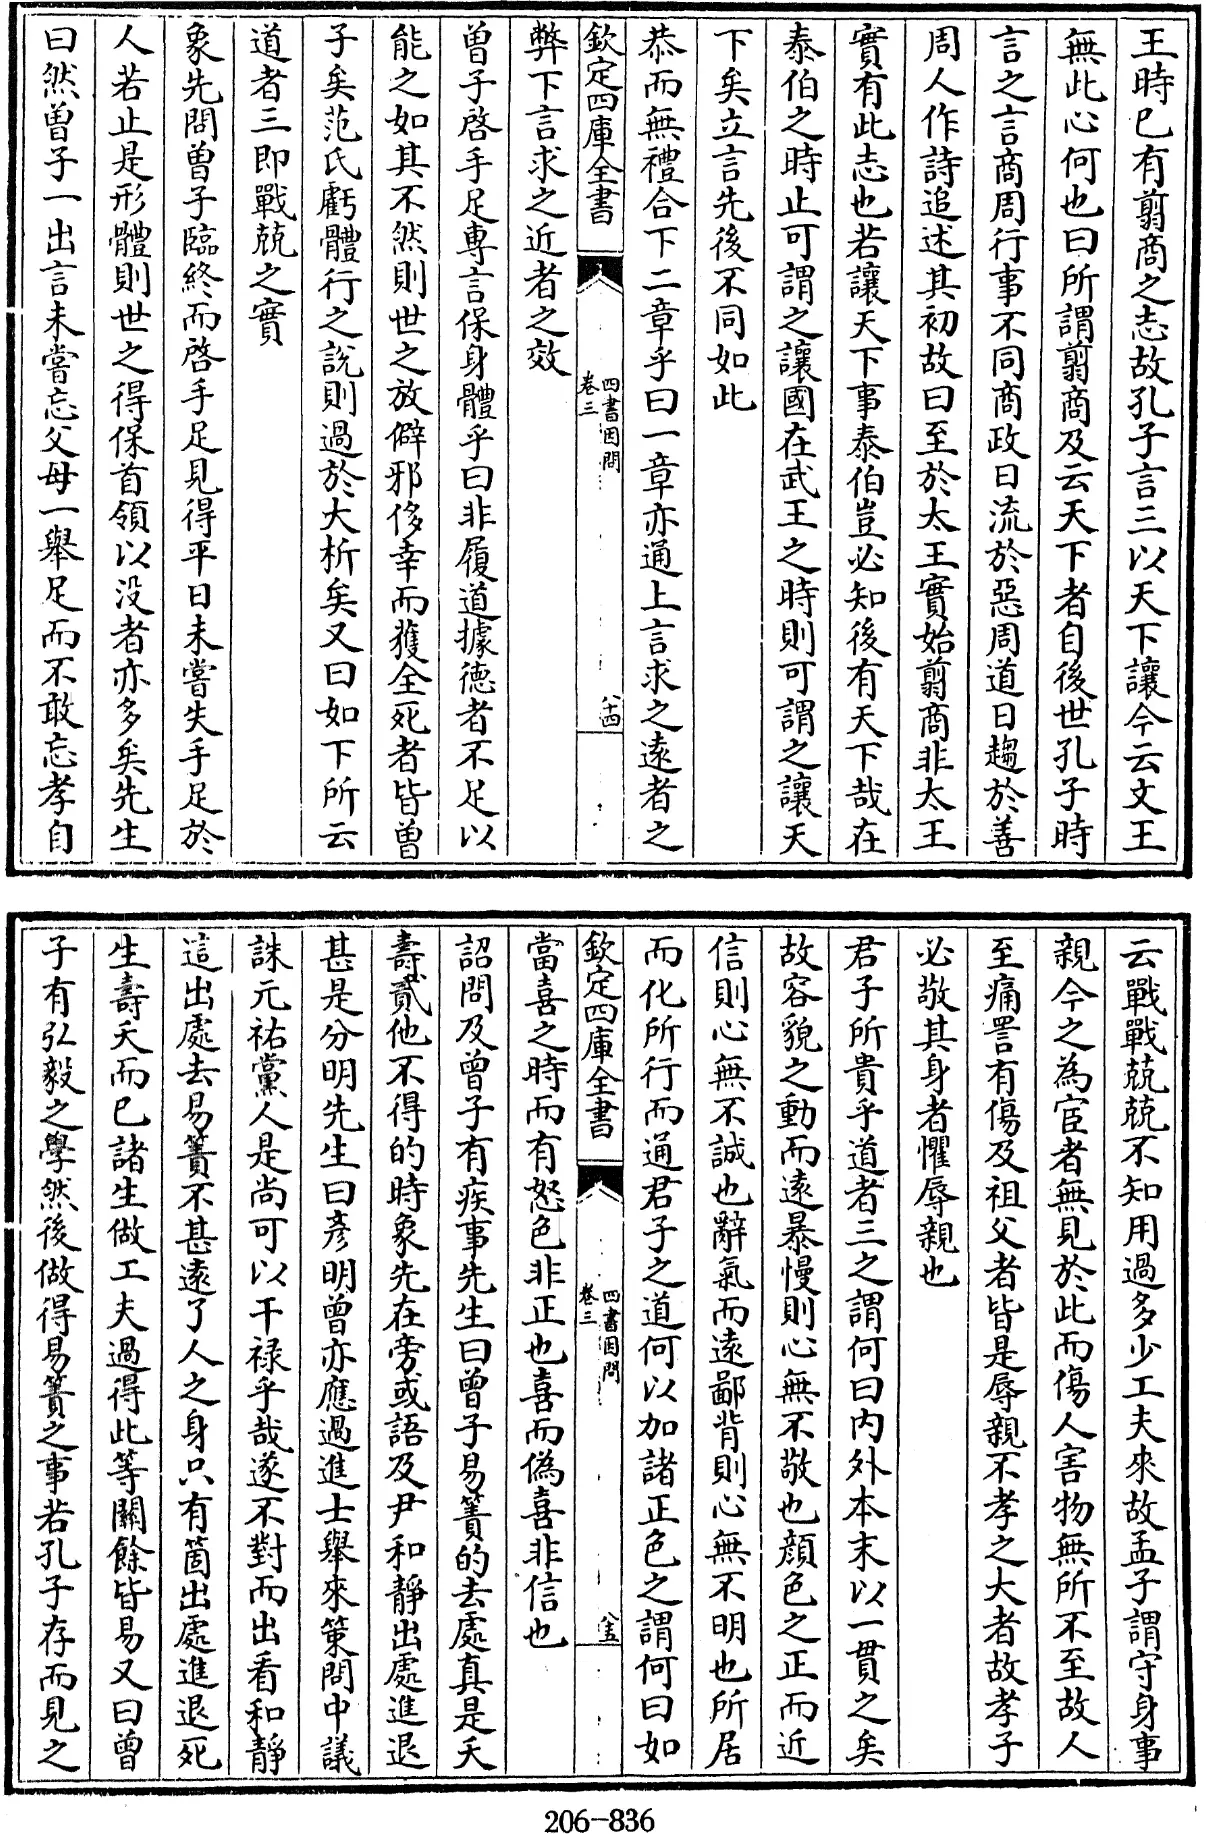 王時已有翦商之志故孔子言三以天下讓今云文王
無此心何也曰所謂翦商及云天下者自後世孔子時
言之言商周行事不同商政日流於惡周道日趨於善
周人作詩追述其初故曰至於太王實始翦商非太王
實有此志也若讓天下事泰伯豈必知後有天下哉在
泰伯之時止可謂之讓國在武王之時則可謂之讓天
下矣立言先後不同如此
恭而無禮合下二章乎曰一章亦通上言求之遠者之
欽定四庫全書
四書因問
卷三
八十四
弊下言求之近者之效
曽子啓手足專言保身體乎曰非履道據徳者不足以
能之如其不然則世之放僻邪侈幸而獲全死者皆曽
子矣范氏虧體行之説則過於大析矣又曰如下所云
道者三即戰兢之實
象先問曽子臨終而啓手足見得平日未嘗失手足於
人若止是形體則世之得保首領以没者亦多矣先生
曰然曽子一出言未嘗忘父母一舉足而不敢忘孝自
云戰戰兢兢不知用過多少工夫來故孟子謂守身事
親今之為宦者無見於此而傷人害物無所不至故人
至痛詈有傷及祖父者皆是辱親不孝之大者故孝子
必敬其身者懼辱親也
君子所貴乎道者三之謂何曰内外本末以一貫之矣
故容貌之動而遠暴慢則心無不敬也顔色之正而近
信則心無不誠也辭氣而遠鄙背則心無不明也所居
而化所行而通君子之道何以加諸正色之謂何曰如
欽定四庫全書
四書因問
卷三
八十五
當喜之時而有怒色非正也喜而偽喜非信也
詔問及曽子有疾事先生曰曽子易簀的去處真是夭
壽貳他不得的時象先在旁或語及尹和靜出處進退
甚是分明先生曰彦明曽亦應過進士舉來策問中議
誅元祐黨人是尚可以干禄乎哉遂不對而出看和靜
這出處去易簀不甚遠了人之身只有箇出處進退死
生壽夭而已諸生做工夫過得此等關餘皆易又曰曽
子有弘毅之學然後做得易簀之事若孔子存而見之
206-836